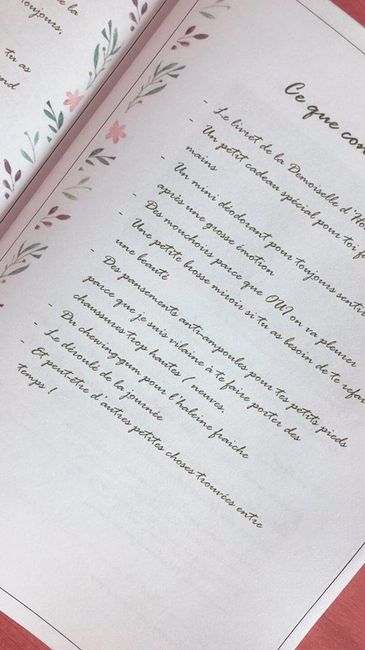 la
toujours,
tu as
Ce que con
- Le livret de la Demoiselle d'Ho
- Un petit cadeau spécial pour toi f
mains
- Un mini déodorant pour toujours senti
après une grosse émotion
- Des mouchoirs parce que OUI on va pleurer
- Une petite brosse miroir si tu as besoin de te refai
une beauté
- Des pansements anti-ampoules pour tes petits pieds
parce que je suis vilaine à te faire porter des
chaussures trop hautes / neuves.
- Du chewing-gum pour l'haleine fraîche
- Le déroulé de la journée
- Et peut-être d'autres petites choses trouvées entre
temps !